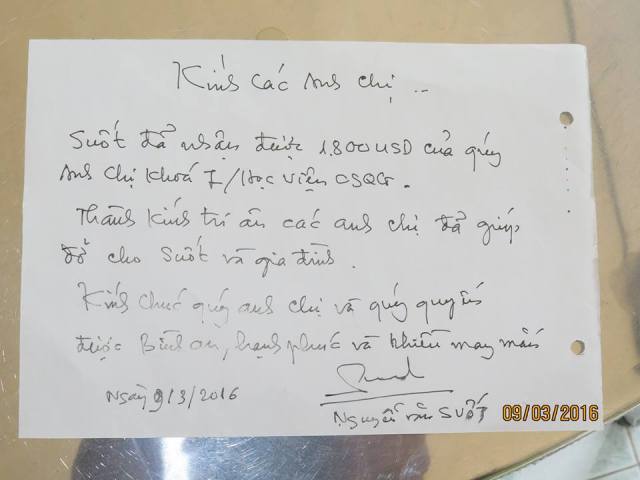 Kính Các Anh chị ..
Suốt đã nhận được 1.800 USD của quý
Anh Chị Khoá 7/Học Viện CSQG.
Thành Kính tri ân các anh chị đã giúp
đỡ cho Suốt và gia đình.
Kính Chúc quý anh chị và quý quyến
được Bình an, hạnh phúc và nhiều may mắn
Ngày 9/3/2016
Nguyễn văn SUỐT
09/03/2016